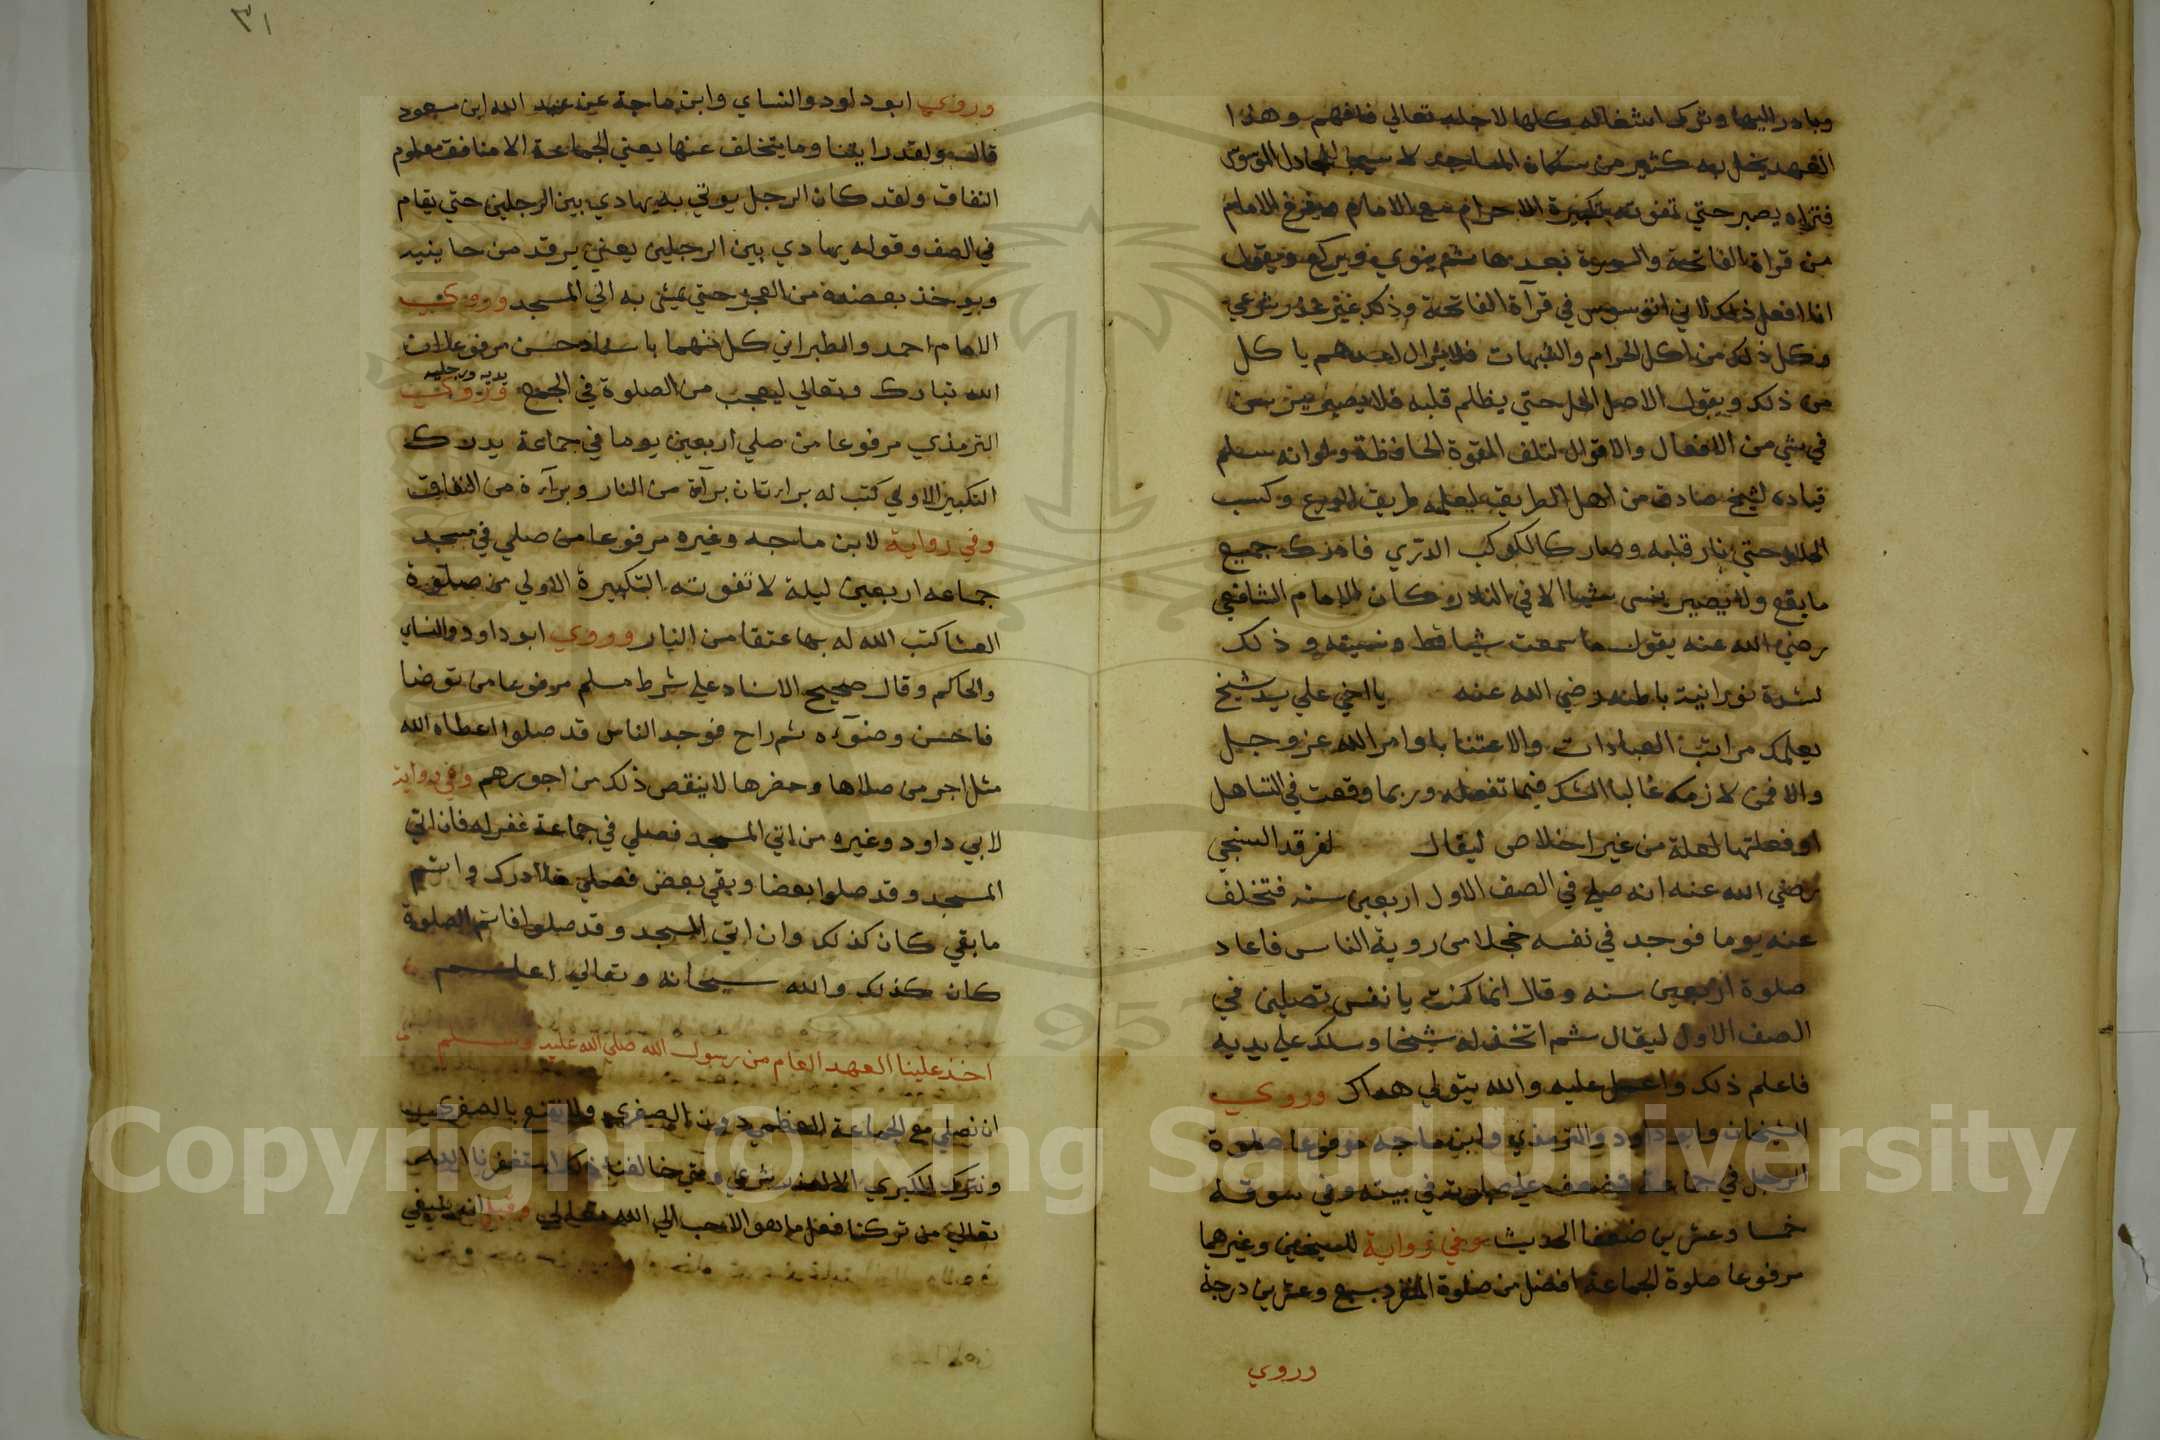 وبادر اليها وترك اشغاله كلها لاجله تعالي فافهم وهذا
العهد يخل به كثير من سكان المساجد لا سيما المجادل الموسوس
فتراه يصبر حتي تفوته تكبيرة الاحرام مع الامام ويفرغ الامام
من قراة الفاتحة والسورة بعدها ثم ينوي ويركع ويقول
انا افعل ذلك لاني اتوسوس في قرآة الفاتحة وذلك غير عذر شرعي
وكل ذلك من اكل الحرام والشبهات فلا يزال احدهم ياكل
من ذلك ويقول الاصل الحل حتي يظلم قلبه فلا يصير
في شي من الافعال والاقوال لتلف القوة الحافظة ولو انه سلم
قياده لشيخ صادق من اهل الطريق ليعلمه طريق الورع وكسب
الحلال حتي نار قلبه وصار كالكوكب الدري فادرك جميع
ما يقع ولا يصير ينسى شيا الا في النادر وكان الامام الشافعي
رضي الله عنه يقول ما سمعت شيا قط ونسيته وذلك
لشدة نورانية باطنه رضي الله عنه يا اخي علي يد شيخ
يعلمك مراتب العبادات والاعتنا باوامر الله عز وجل
والا فمن لازمك غالبا الشك فيما تفعله وربما وقعت في التساهل
او فعلتها لعلة من غير اخلاص ليقال لفرقد السنجي
رضي الله عنه انه صلي في الصف الاول اربعين سنه فتخلف
عنه يوما فوجد في نفسه خجلا من روية الناس فاعاد
صلوة اربعين سنه وقال انما كنت يا نفس تصلين في
الصف الاول ليقال ثم اتخذ له شيخا وسلك علي يديه
فاعلم ذلك واعمل عليه والله يتولي هداك وروي
الشيخان وابو داود والترمذي وابن ماجه مرفوعا صلوة
الرجل في جماعة تضعف علي صلوته في بيته وفي سوقه
خمسا وعشرين ضعفا الحديث وفي رواية للشيخين وغيرهما
مرفوعا صلوة الجماعة افضل من صلوة الفرد بسبع وعشرين درجة
وروي
٣١
وروي ابو داود والنساي وابن ماجة عن عبد الله ابن مسعود
قال ولقد رايتنا وما يتخلف عنها يعني الجماعة الا منافق معلوم
النفاق ولقد كان الرجل يوتي به يهادي بين الرجلين حتي يقام
في الصف وقوله يهادي بين الرجلين يعني يرفد من جانبيه
ويوخذ بعضده من العجز حتي يمشي به الي المسجد وروي
الامام احمد والطبراني كل منهما باسناد حسن مرفوعا ان
الله تبارك وتعالي ليعجب من الصلوة في الجمع وروي
الترمذي مرفوعا من صلي اربعين يوما في جماعة يدرك
التكبير الاولي كتب له براءتان برآة من النار وبرآءة من النفاق
وفي رواية لابن ماجه وغيره مرفوعا من صلي في مسجد
جماعه اربعين ليلة لا تفوته التكبيرة الاولي من صلوة
العشا كتب الله له بها عتقا من النار وروي ابو داود والنساي
والحاكم وقال صحيح الاسناد علي شرط مسلم مرفوعا من توضا
فاحسن وضوءه ثم راح فوجد الناس قد صلوا اعطاه الله
مثل اجر من صلاها وحضرها لا ينقص ذلك من اجورهم وفي رواية
لابي داود وغيره من اتي المسجد فصلي في جماعة غفر له فان اتي
المسجد وقد صلوا بعضا وبقي بعض فصلي ما ادرك واتم
ما بقي كان كذلك وان اتي المسجد وقد صلوا فاتم الصلوة
كان كذلك والله سبحانه وتعالي اعلم
اخذ علينا العهد العام من رسول الله صلي الله عليه وسلم
ان نصلي مع الجماعة العظمي دون الصغري ولا نقنع بالصغري
ونترك الكبري الا لعذر شرعي ومتي خالفنا ذلك استغفرنا الله
تعالي من تركنا فعل ما هو الاحب الي الله تعالي